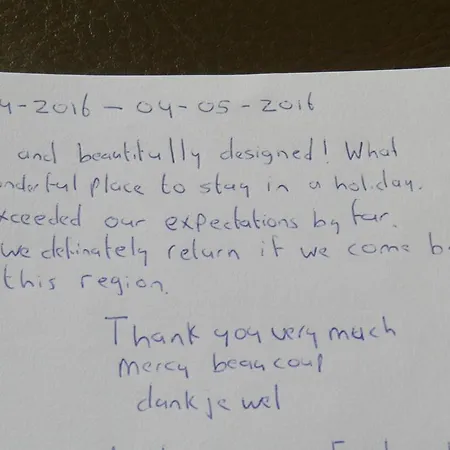 4-2016 - 04-05-2016
and beautifully designed! What
nderful place to stay in a holiday.
xceeded our expectations by far.
we definately return if we come b
this region.
Thank you very much
mercy beaucoup
dank je wel